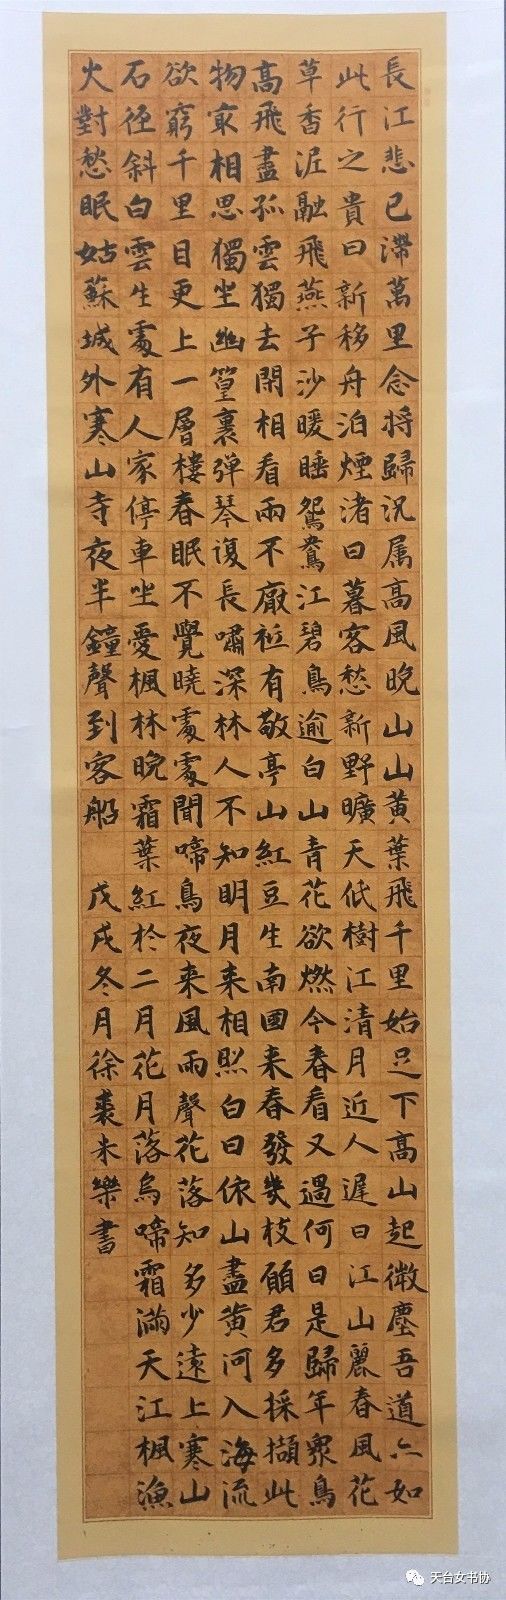 長江悲已滯萬里念将歸况属高風晚山山黄葉飛千里始足下高山起微塵吾道亦如
此行之貴日新移舟泊煙渚日暮客愁新野曠天低樹江清月近人遲日江山麗春風花
草香泥融飛燕子沙暖睡鴛鴦江碧鳥逾白山青花欲燃今春看又過何日是歸年衆鳥
高飛盡孤雲獨去閑相看兩不厭祗有敬亭山紅豆生南國来春發幾枝願君多採擷此
物冣相思獨坐幽篁裏弹琴復長嘯深林人不知明月来相照白日依山盡黄河入海流
欲窮千里目更上一層樓春眠不覺曉處處聞啼鳥夜来風雨聲花落知多少遠上寒山
石徑斜白雲生處有人家停車坐愛楓林晚霜葉紅於二月花月落烏啼霜滿天江楓漁
火對愁眠姑蘇城外寒山寺夜半鐘聲到客船 戊戌冬月徐裘樂書
天台女书协